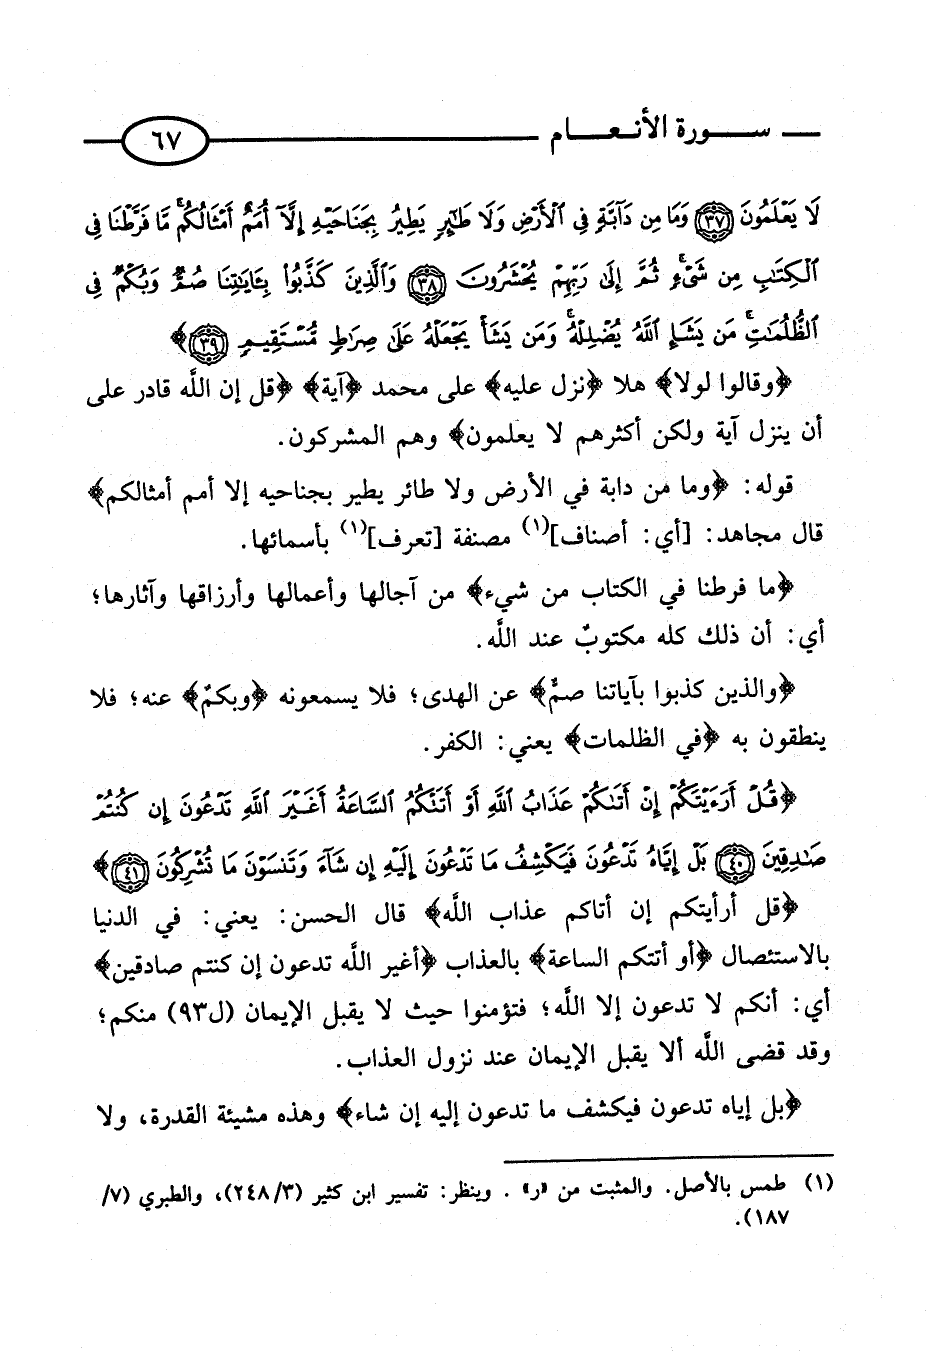 سورة الأنعام ٦٧
لَا يَعْلَمُونَ ٣٧ وَمَا مِن دَآبَّةٍ فِى ٱلْأَرْضِ وَلَا طَٰٓئِرٍ يَطِيرُ بِجَنَاحَيْهِ إِلَّآ أُمَمٌ أَمْثَالُكُم ۚ مَّا فَرَّطْنَا فِى
ٱلْكِتَٰبِ مِن شَىْءٍ ۚ ثُمَّ إِلَىٰ رَبِّهِمْ يُحْشَرُونَ ٣٨ وَٱلَّذِينَ كَذَّبُوا۟ بِـَٔايَٰتِنَا صُمٌّ وَبُكْمٌ فِى
ٱلظُّلُمَٰتِ ۗ مَن يَشَإِ ٱللَّهُ يُضْلِلْهُ وَمَن يَشَأْ يَجْعَلْهُ عَلَىٰ صِرَٰطٍ مُّسْتَقِيمٍ ٣٩﴾
﴿وقالوا لولا﴾ هلا ﴿نزل عليه﴾ على محمد ﴿آية﴾ ﴿قل إن اللَّه قادر على
أن ينزل آية ولكن أكثرهم لا يعلمون﴾ وهم المشركون.
قوله: ﴿وما من دابة في الأرض ولا طائر يطير بجناحيه إلا أمم أمثالكم﴾
قال مجاهد: [أي: أصناف](١) مصنفة [تعرف](١) بأسمائها.
﴿ما فرطنا في الكتاب من شيء﴾ من آجالها وأعمالها وأرزاقها وآثارها؛
أي: أن ذلك كله مكتوبٌ عند اللَّه.
﴿والذين كذبوا بآياتنا صمٌّ﴾ عن الهدى؛ فلا يسمعونه ﴿وبكمٌ﴾ عنه؛ فلا
ينطقون به ﴿في الظلمات﴾ يعني: الكفر.
﴿قُلْ أَرَءَيْتَكُمْ إِنْ أَتَىٰكُمْ عَذَابُ ٱللَّهِ أَوْ أَتَتْكُمُ ٱلسَّاعَةُ أَغَيْرَ ٱللَّهِ تَدْعُونَ إِن كُنتُمْ
صَٰدِقِينَ ٤٠ بَلْ إِيَّاهُ تَدْعُونَ فَيَكْشِفُ مَا تَدْعُونَ إِلَيْهِ إِن شَآءَ وَتَنسَوْنَ مَا تُشْرِكُونَ ٤١﴾
﴿قل أرأيتكم إن أتاكم عذاب اللَّه﴾ قال الحسن: يعني: في الدنيا
بالاستئصال ﴿أو أتتكم الساعة﴾ بالعذاب ﴿أغير اللَّه تدعون إن كنتم صادقين﴾
أي: أنكم لا تدعون إلا اللَّه؛ فتؤمنوا حيث لا يقبل الإيمان (ل٩٣) منكم؛
وقد قضى اللَّه ألا يقبل الإيمان عند نزول العذاب.
﴿بل إياه تدعون فيكشف ما تدعون إليه إن شاء﴾ وهذه مشيئة القدرة، ولا
(١) طمس بالأصل. والمثبت من «ر» . وينظر: تفسير ابن كثير (٢٤٨/٣)، والطبري (٧/
١٨٧).